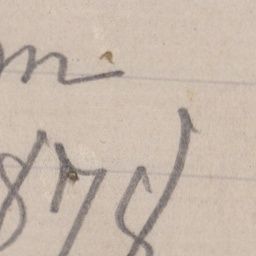 m
878